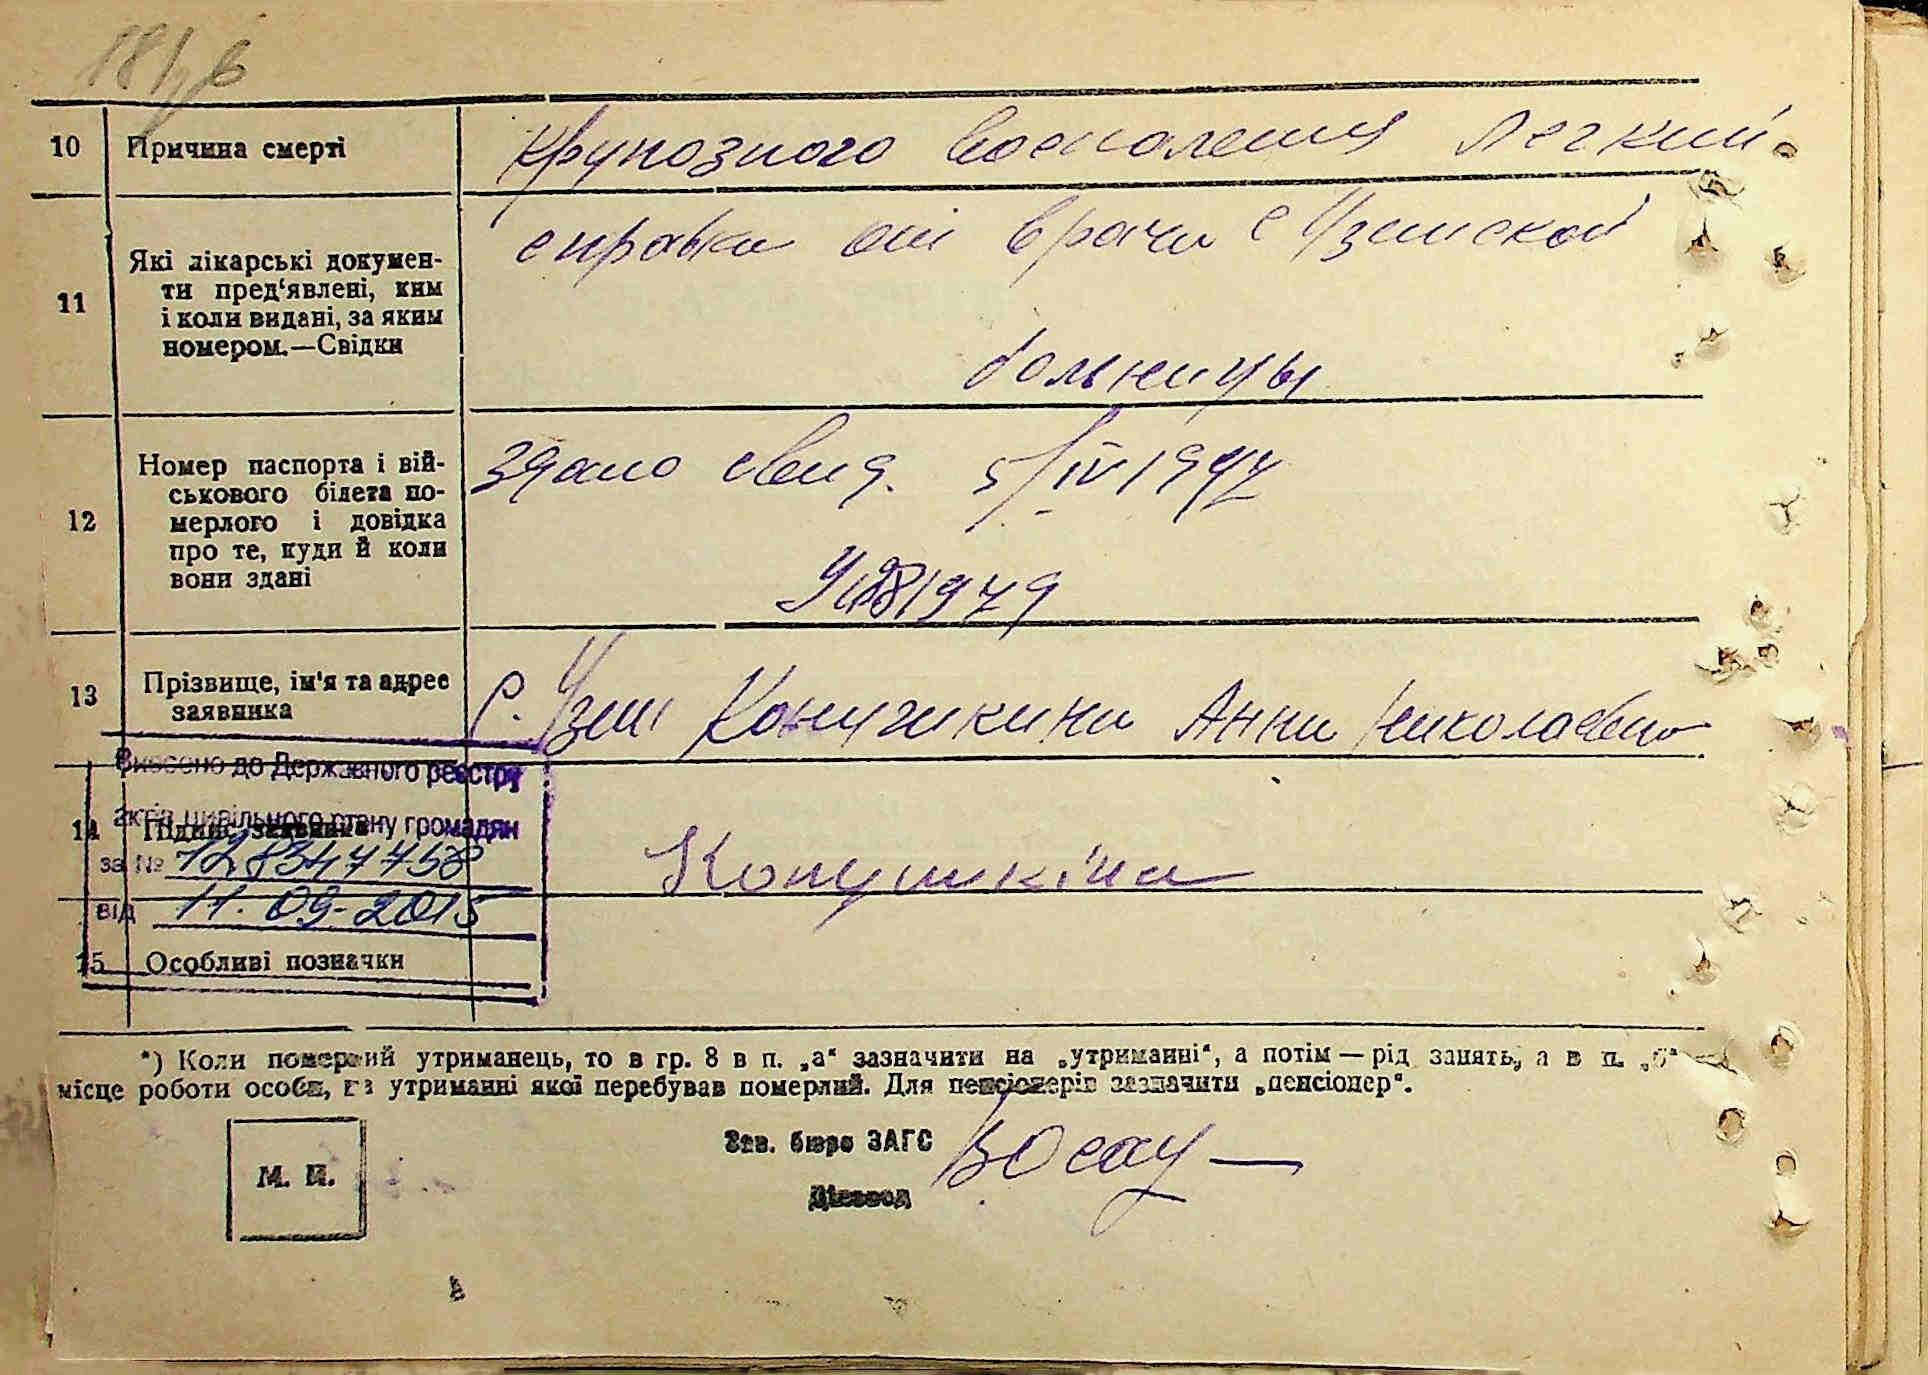 10 Причина смерті Крупозного воспаления легкий
11 Які лікарські докумен-
ти пред'явлені, ким
і коли видані, за яким
номером.—Свідки
справка от врача с Узинской
больницы
12 Номер паспорта і вій-
ськового білета по-
мерлого і довідка
про те, куди й коли
вони здані
здано свид. 5/IV 1947
13 Прізвище, ім'я та адрес
заявника
С. Узин Анна Николаевна
Внесено до Державного реєстру
актів цивільного стану громадян
14 Підпис заявника
за №
від 11.09.2015
15 Особливі позначки
*) Коли померлий утриманець, то в гр. 8 в п. „а“ зазначити на „утриманні“, а потім — рід занять, а в п. „б“
місце роботи особи, на утриманні якої перебував померлий. Для пенсіонерів зазначити „пенсіонер“.
Зав. бюро ЗАГС
М. П.
Діловод